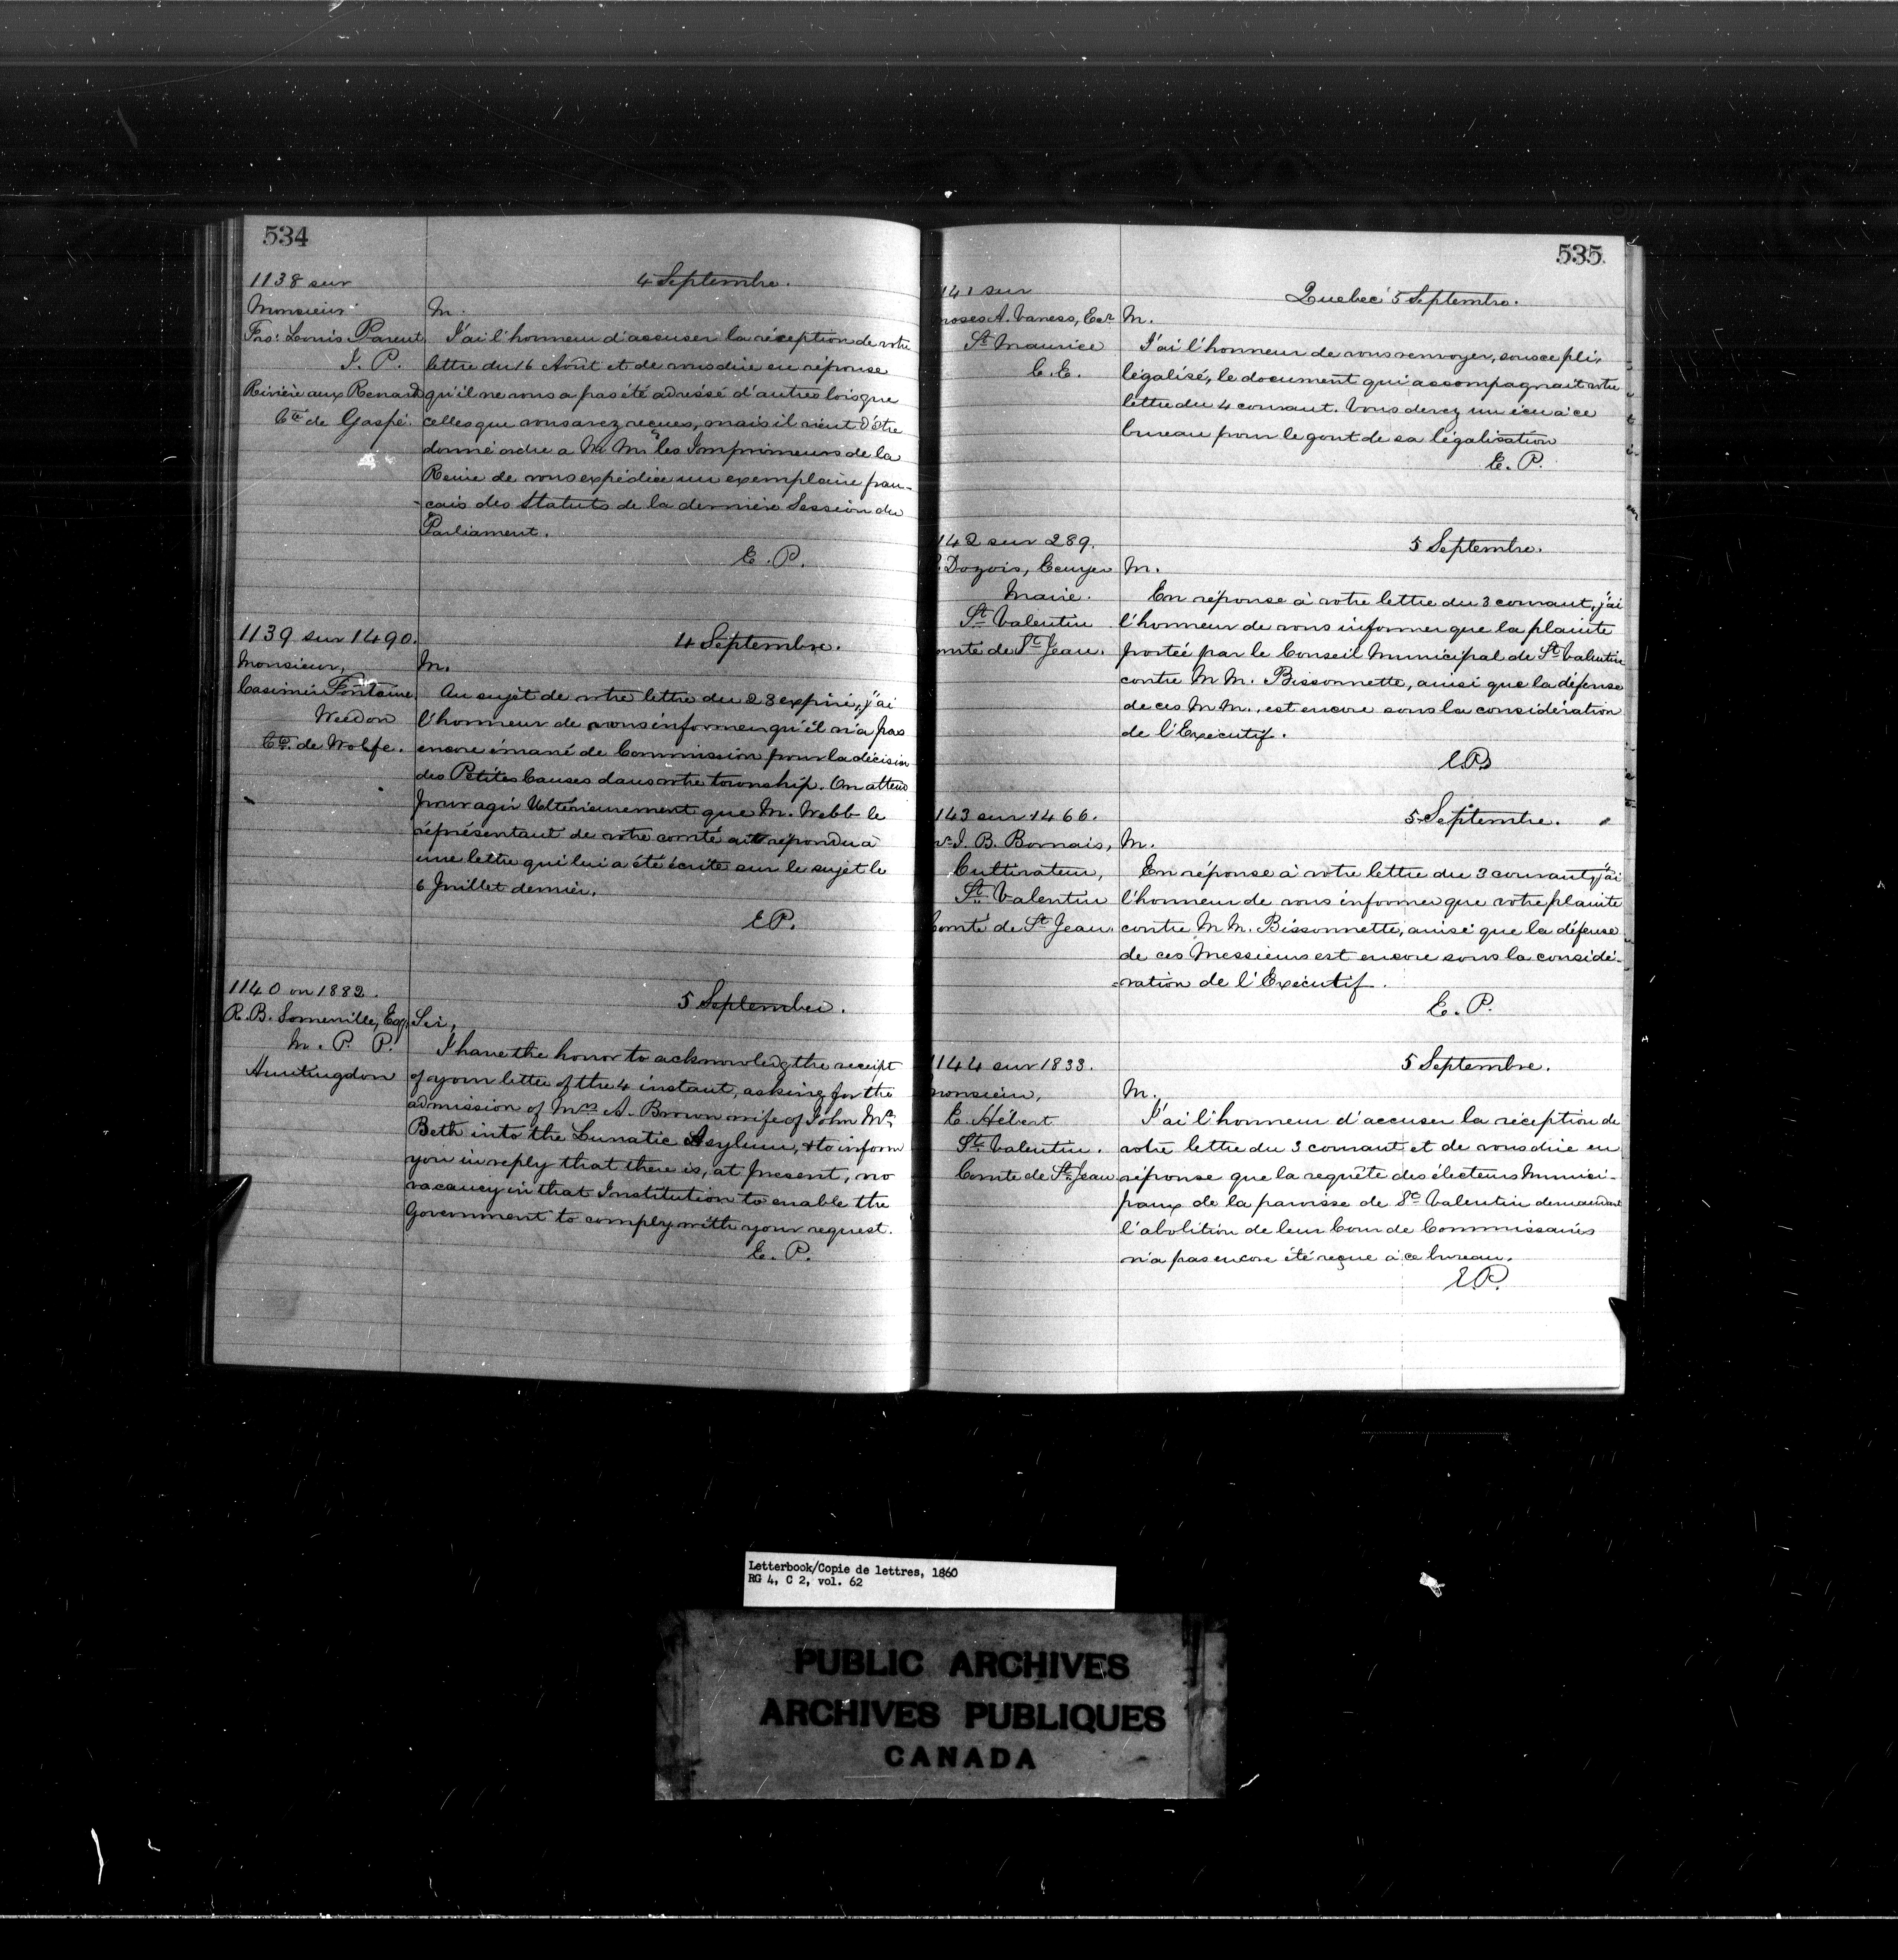 534
1138 sur
4 Septembre.
Monsieur
M.
Frs: Louis Parent
J'ai l'honneur d'accuser la réception de votre
J. P.
lettre du 16 Août et de vous dire en réponse
Rivière aux Renards
qu'il ne vous a pas été adressé d'autres lois que
Cté de Gaspé.
celles que vous avez reçues, mais il vient d'être
donné ordre a M. M. les Imprimeurs de la
Reine de vous expédier un exemplaire fran-
-cais des Statuts de la dernière Session du
Parliament.
E. P.
1139 sur 1490.
4 Septembre.
Monsieur,
M.
Casimir Fontaine
Au sujet de votre lettre du 28 expiré, j'ai
Weedon
l'honneur de vous informer qu'il n'a pas
Cté. de Wolfe.
encore émané de Commission pour la décision
des Petites Causes dans votre township. On attend
pour agir Ultérieurement que M. Webb le
réprésentant de votre comté ait répondu à
une lettre qui lui a été écrite sur le sujet le
6 Juillet dernier.
E P.
1140 on 1882.
5 September.
R. B. Somerville, Esq.
Sir,
M. P. P.
I have the honor to acknowledg the receipt
Huntingdon
of your letter of the 4 instant, asking for the
admission of Mrs A. Brown wife of John Mc
Beth into the Lunatic Asylum, & to inform
you in reply that there is, at present, no
vacancy in that Institution to enable the
Government to comply with your request.
E. P.
535
141 sur
Quebec 5 Septembre.
Moses A. Vaness, Ecr
M.
St Maurice
J'ai l'honneur de vous renvoyer, sous ce pli,
C. E.
légalisé, le document qui accompagnait votre
lettre du 4 courant. Vous devez un écu à ce
bureau pour le gout de sa légalisation
E. P.
142 sur 289.
5 Septembre.
Dozois, Ecuyer
M.
Maire.
En réponse à votre lettre du 3 courant, j'ai
St Valentin
l'honneur de vous informer que la plainte
omté de St Jean.
portée par le Conseil Municipal de St Valentin
contre M M. Bissonnette, ainsi que la défense
de ces M M., est encore sous la considération
de l'Exécutif.
E. P.
143 sur 1466.
5 Septembre.
J. B. Bornais,
M.
Cultivateur,
En réponse à votre lettre du 3 courant, j'ai
St Valentin
l'honneur de vous informer que votre plainte
Comté de St Jean.
contre M M. Bissonnette, ainsi que la défense
de ces Messieurs est encore sous la considé-
-ration de l'Exécutif.
E. P.
1144 sur 1833.
5 Septembre.
Monsieur,
M.
E. Hébert
J'ai l'honneur d'accuser la réception de
St Valentin.
votre lettre du 3 courant et de vous dire en
Comté de St Jean
réponse que la requête des électeurs Munici-
paux de la paroisse de St Valentin demandant
l'abolition de leur Cour de Commissaires
n'a pas encore été reçue à ce bureau.
E. P.
Letterbook/Copie de lettres, 1860
RG 4, C 2, vol. 62
PUBLIC ARCHIVES
ARCHIVES PUBLIQUES
CANADA